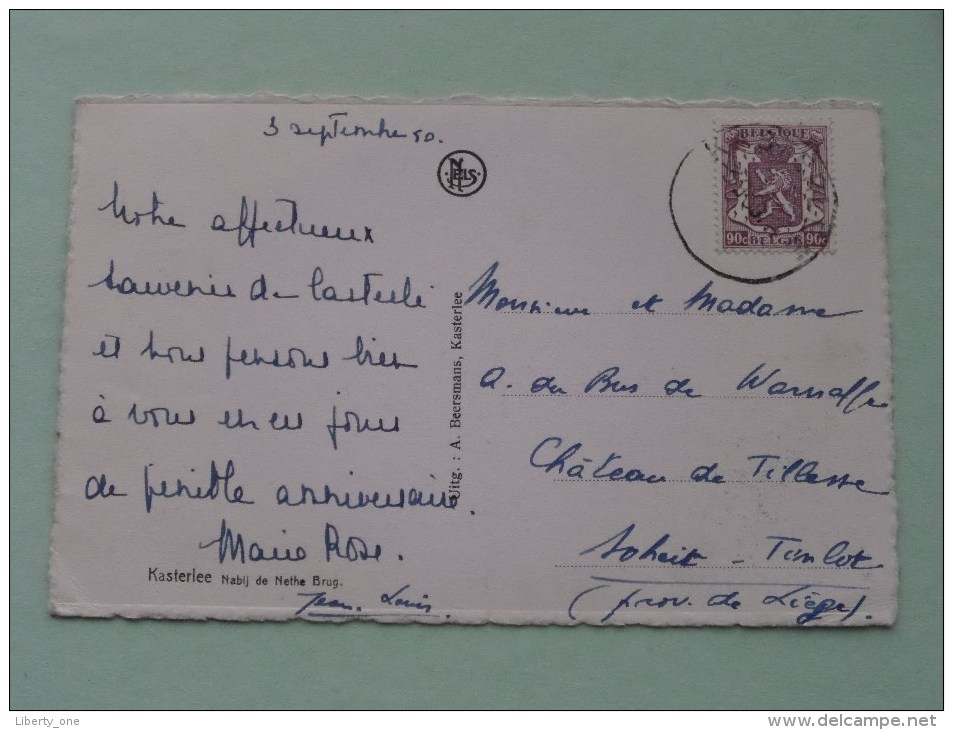 3 septembre 50.
NELS
BELGIQUE
90c BELGIE 90c
Notre affectueux
souvenir de Casterlé
et nous pensons bien
à vous en ces jours
de pénible anniversaire.
Marie Rose.
Jean-Louis.
Kasterlee Nabij de Nethe Brug.
Uitg. : A. Beersmans, Kasterlee
Monsieur et Madame
A. du Bus de Warnaffe
Château de Tillesse
Soheit - Tinlot
(prov. de Liège).
Liberty_one
www.delcampe.net